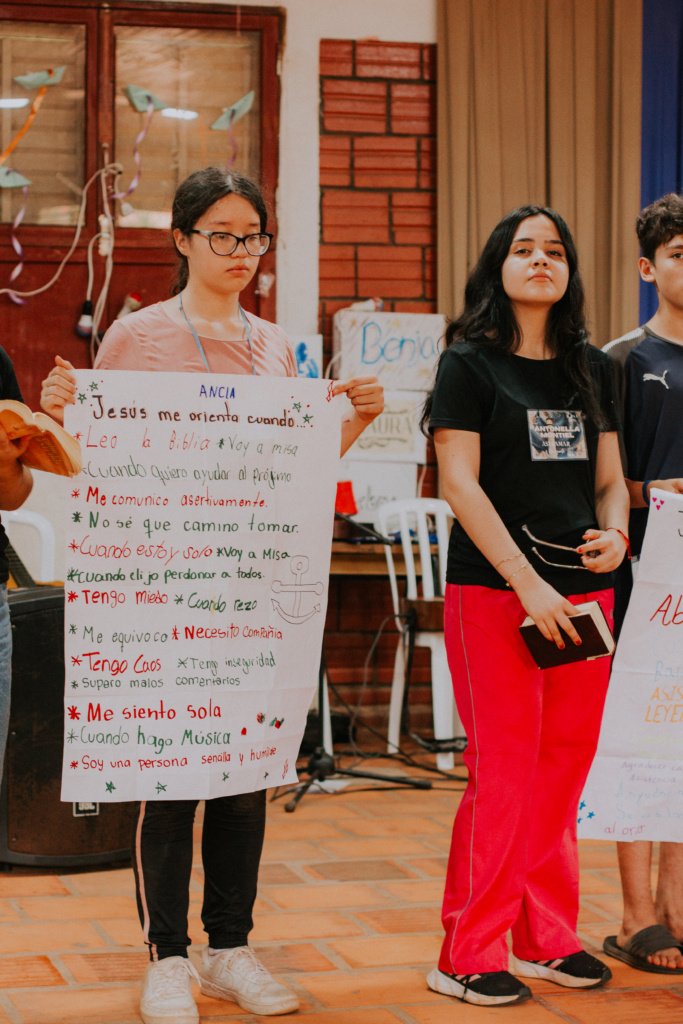 ANCLA
Jesús me orienta cuando...
* Leo la Biblia * Voy a misa
* Cuando quiero ayudar al prójimo
* Me comunico asertivamente.
* No sé que camino tomar.
* Cuando estoy solo * Voy a Misa
* Cuando elijo perdonar a todos.
* Tengo miedo * Cuando rezo
* Me equivoco * Necesito compañia
* Tengo Caos * Tengo inseguridad
* Supero malos comentarios
* Me siento sola
* Cuando hago Música
* Soy una persona sencilla y humilde
Benja
LAURA
ANTONELLA
MONTIEL
al orar